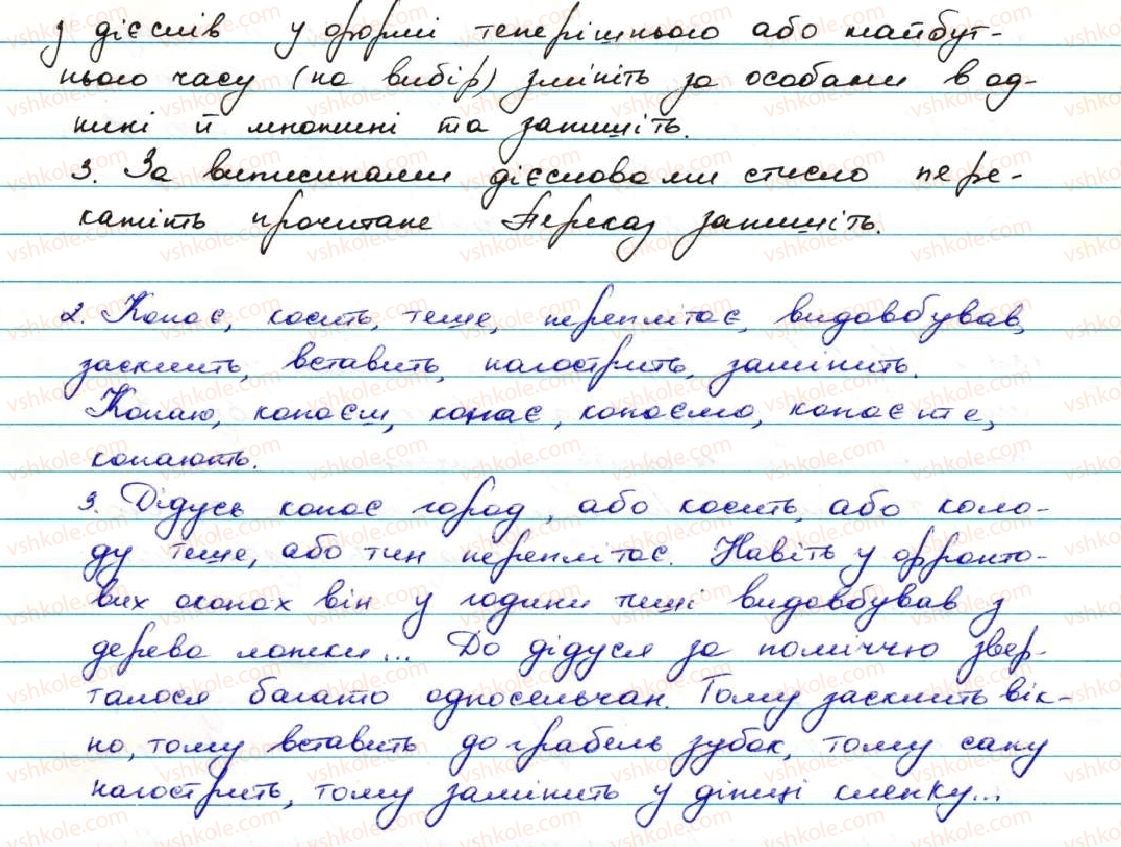 з дієслів у формі теперішнього або майбут-
нього часу (на вибір) змініть за особами в од-
нині й множині та запишіть.
3. За виписаними дієсловами стисло пере-
кажіть прочитане Переказ запишіть.
2. Копає, косить, теше, переплітає, видовбував,
засклить, вставить, нагострить, замінить.
Копаю, копаєш, копає, копаємо, копаєте,
копають.
3. Дідусь копає город, або косить, або коло-
ду теше, або тин переплітає. Навіть у фронто-
вих окопах він у години тиші видовбував з
дерева ложки... До дідуся за поміччю звер-
талося багато односельчан. Тому засклить вік-
но, тому вставить до грабель зубок, тому сапу
нагострить, тому замінить у діжці клепку...